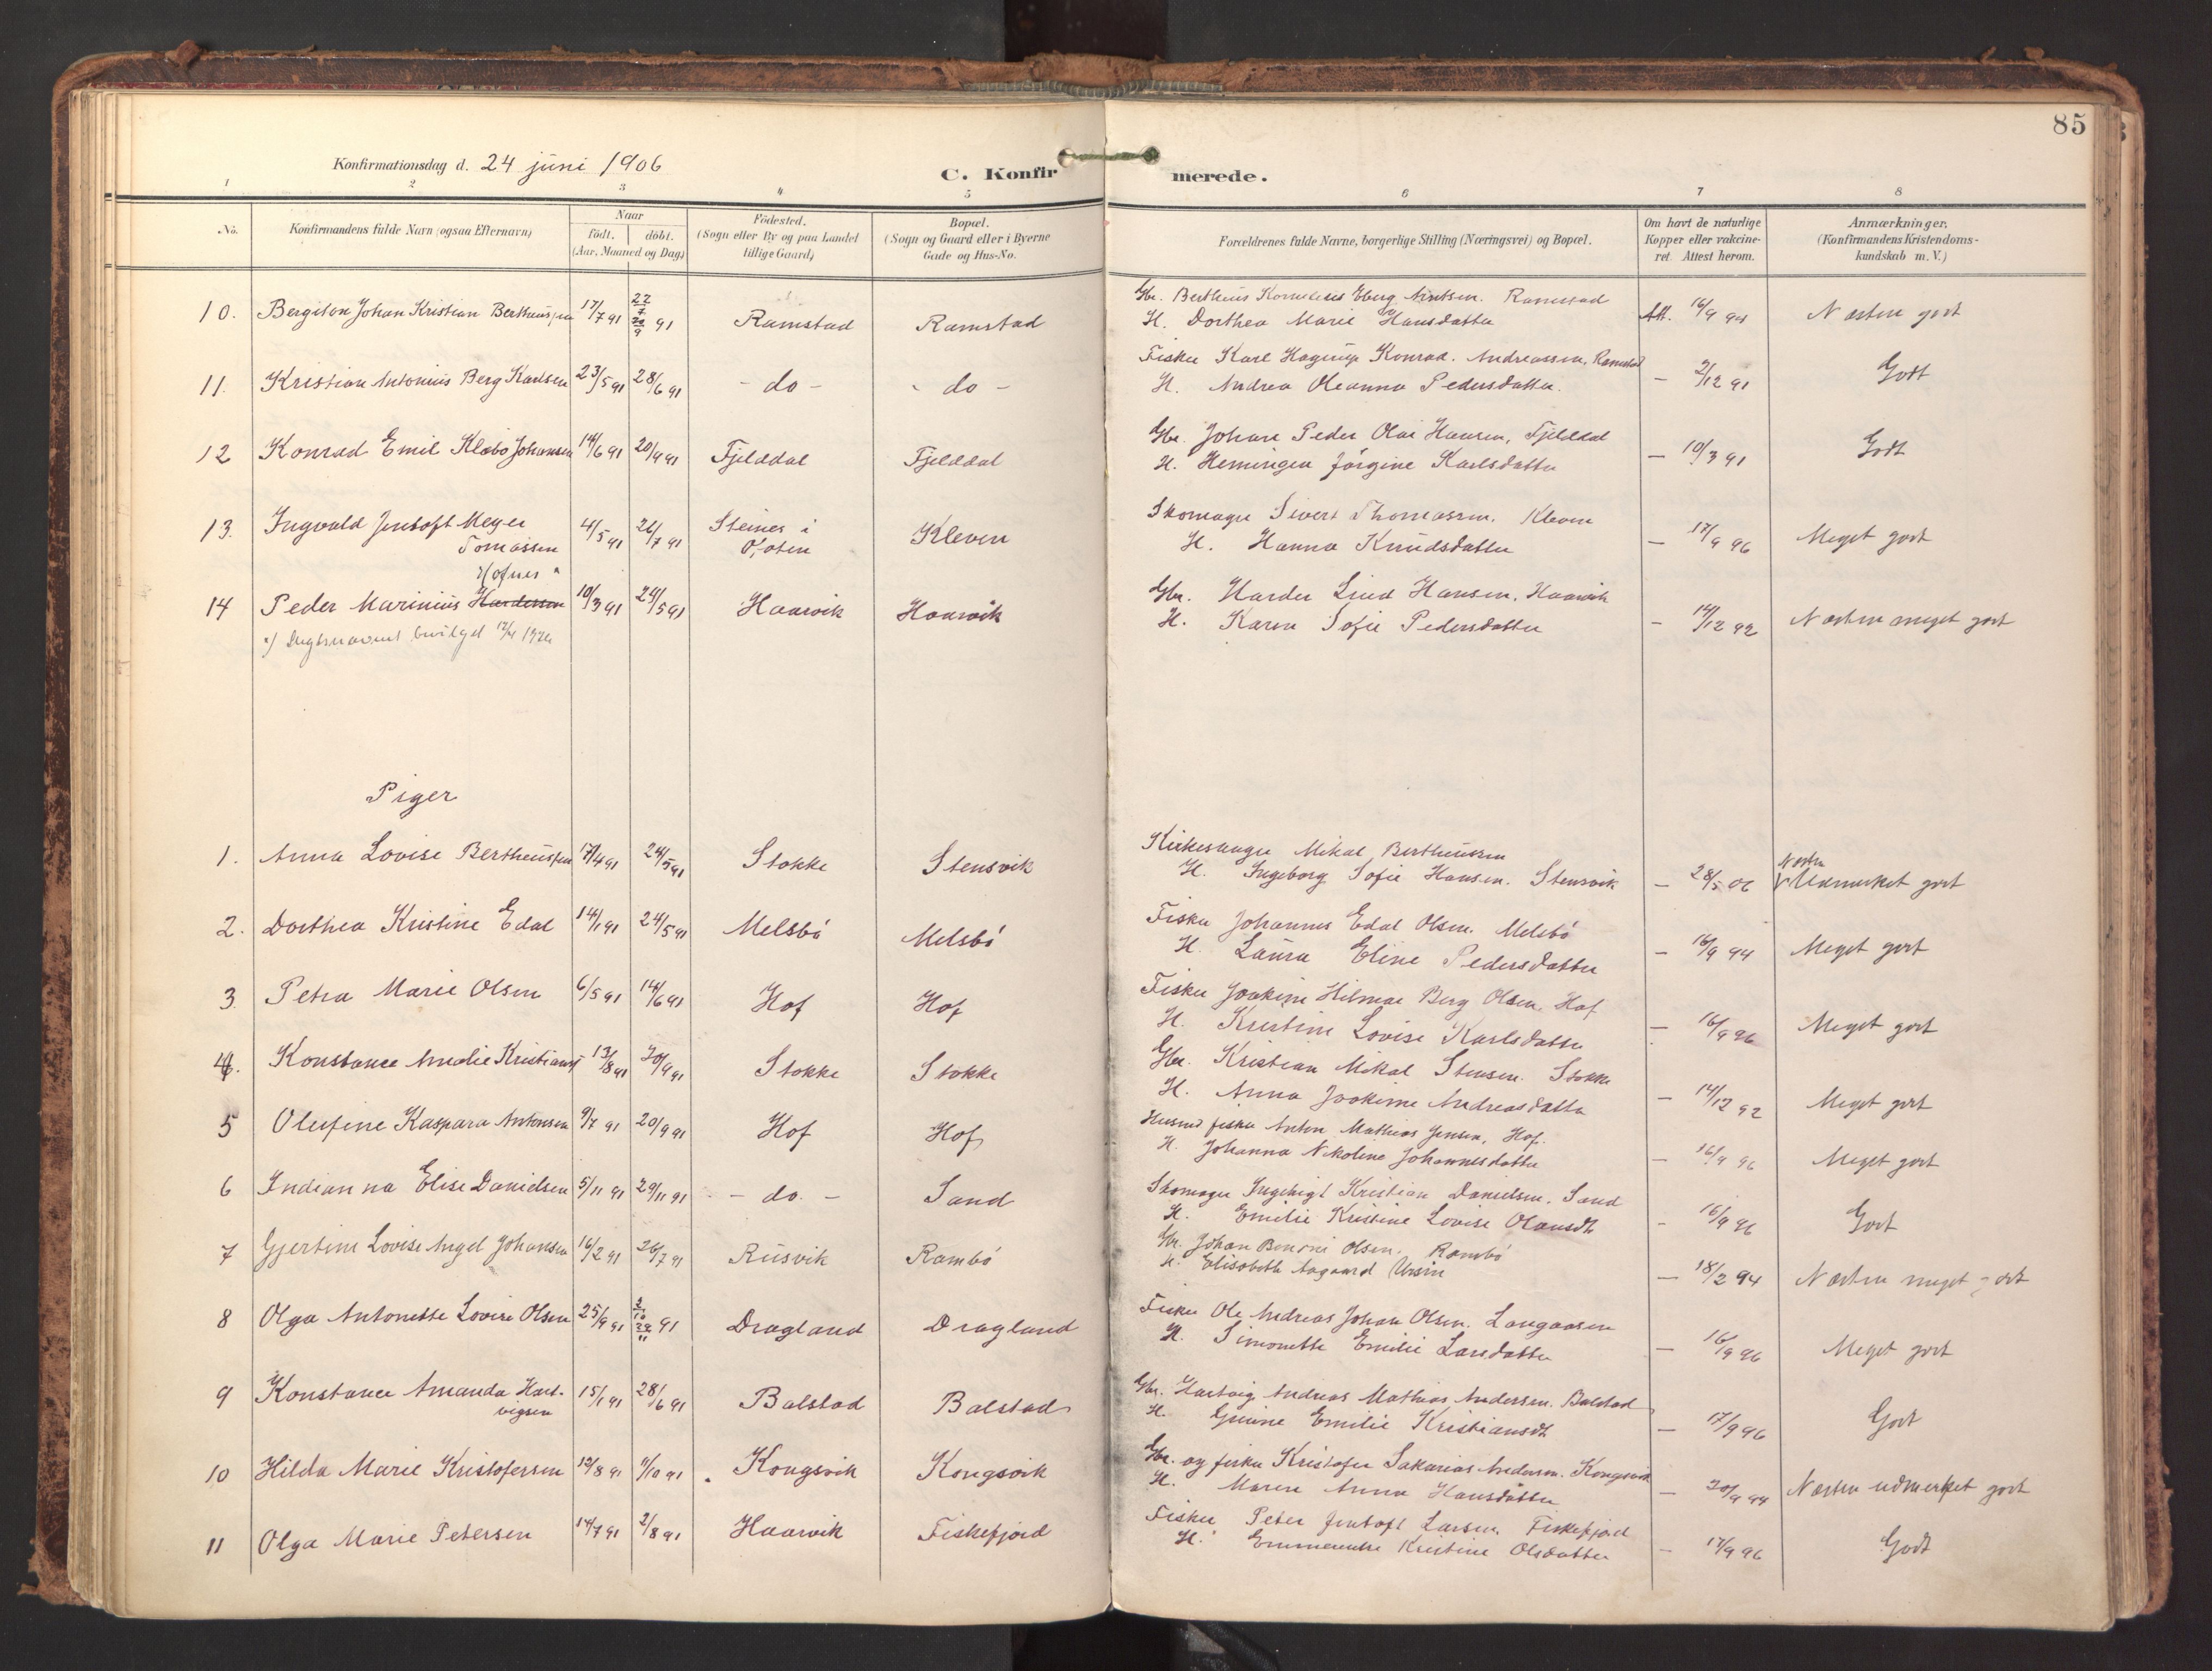 85
Konfirmationsdag d. 24 juni 1906
C. Konfirmerede.
1 2 3 4 5 6 7 8
No. Konfirmandens fulde Navn (ogsaa Efternavn) Naar født. døbt. (Aar, Maaned og Dag) Fødested. (Sogn eller By og paa Landet tillige Gaard) Bopæl. (Sogn og Gaard eller i Byerne Gade og Hus-No. Forældrenes fulde Navne, borgerlige Stilling (Næringsvei) og Bopæl. Om havt de naturlige Kopper eller vakcineret. Attest herom. Anmærkninger. (Konfirmandens Kristendomskundskab m. V.)
10. Bergiton Johan Kristian Bertheussen 17/7 91 22/7 20/9 91 Ramstad Ramstad Gbr. Bertheus Kornelius Ramstad Att. 16/9 94 Næsten godt
H. Dorthea Marie Hansdatter
11. Kristian Antonius Berg Karlsen 23/5 91 28/6 91 - do - - do - Fisker Karl Hagerup Konrad Andreassen, Ramstad — 2/12 91 Godt
H. Andrea Oleanna Pedersdatter.
12 Konrad Emil Klæbo Johansen 14/6 91 20/9 91 Fjelddal Fjelddal Gbr. Johan Peder Olai Hansen, Fjelddal — 10/3 91 Godt
H. Hemingea Jørgine Karlsdatter
13. Ingvald Jentoft Meyer 4/5 91 26/7 91 Steines i Kleven Skomager Sivert Thomassen. Kleven — 17/9 96 Meget godt
Tomassen
H. Hanna Knudsdatter
Hofnes *
14 Peder Marinius Hardersen 10/3 91 24/5 91 Haarvik Haarvik Gbr. Harder Lind Hansen, Haarvik — 14/12 92 Næsten meget godt
H. Karen Sofie Pedersdatter
Piger
1. Anna Lovise Bertheussen 17/4 91 24/5 91 Stokke Stensvik Kirkesanger Mikal Bertheussen — 28/5 06 Næsten Udmerket godt
H. Ingeborg Sofie Hansen. Stensvik
2. Dorthea Kristine Edal 14/1 91 24/5 91 Melsbø Melsbø Fisker Johannes Edal Olsen. Melsbø — 16/9 94 Meget godt
H. Laura Eline Pedersdatter
3. Petra Marie Olsen 6/5 91 14/6 91 Hof Hof Fisker Joakim Hilmar Berg Olsen, Hof — 16/9 96 Meget godt
H. Kristine Lovise Karlsdatter
4. Konstance Amalie Kristians 13/8 91 20/9 91 Stokke Stokke Gbr. Kristian Mikal Stensen. Stokke — 14/12 92 Meget godt
H. Anna Joakime Andreasdatter
5 Olufine Kaspara Antonsen 9/7 91 20/9 91 Hof Hof Husmd fisker Anton Mathias Jensen, Hof. — 16/9 96 Meget godt
H. Johanna Nikoline Johannesdatter
6 Indianna Elise Danielsen 5/11 91 29/11 91 - do. - Sand Skomager Ingebrigt Kristian Danielsen. Sand - 16/9 96 Godt
H. Emilie Kristine Lovise Olausdt
7 Gjertine Lovise Angel Johansen 16/2 91 26/7 91 Risvik Rambø Gbr. Johan Benoni Olsen. Rambø — 18/2 94 Næsten meget godt
H. Elisabeth Aagaard Ursin
8 Olga Antonette Lovise Olsen 25/9 91 91 Dragland Dragland Fisker Ole Andreas Johan Olsen. Langaasen — 16/9 96 Meget godt
H. Simonette Emilie Larsdatter
9 Konstance Amanda Hartvigsen 15/1 91 28/6 91 Balstad Balstad Gbr. Hartvig Andreas Mathias Andersen. Balstad — 17/9 96 Godt
H. Emilie Kristiansdt
10 Hilda Marie Kristofersen 12/8 91 11/10 91 Kongsvik Kongsvik Gbr. og fisker Kristofer Sakarias Andersen. Kongsvik — 20/9 94 Næsten udmerket godt
H. Maren Anna Hansdatter
11 Olga Marie Petersen 14/7 91 2/8 91 Haarvik Fiskefjord Fisker Peter Jentoft Larsen, Fiskefjord — 17/9 96 Godt
H. Emmerentse Kristine Olsdatter